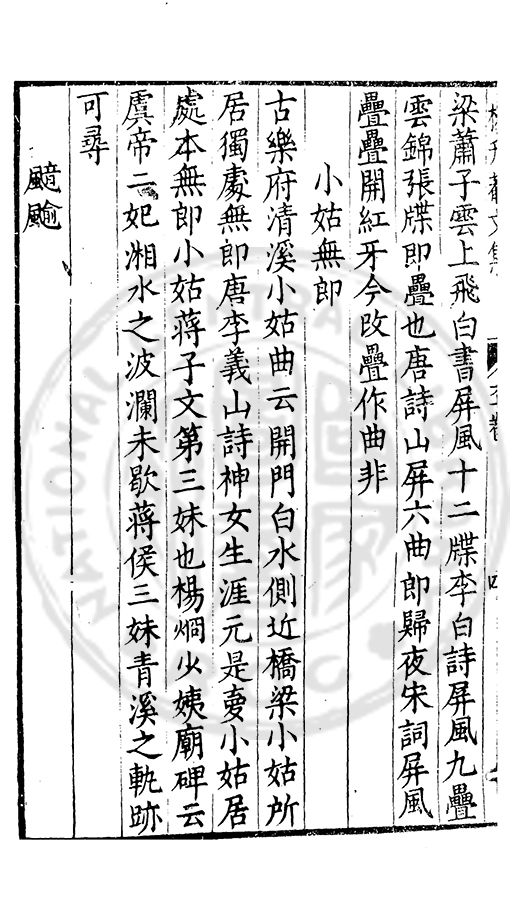 梁蕭子雲上飛白書屏風十二牒李白詩屏風九疊
雲錦張牒即疊也唐詩山屏六曲郎歸夜宋詞屏風
疊疊開紅牙今改疊作曲非
小姑無郎
古樂府清溪小姑曲云開門白水側近橋梁小姑所
居獨處無郎唐李義山詩神女生涯元是夢小姑居
處本無郎小姑蔣子文第三妹也楊烱少姨廟碑云
虞帝二妃湘水之波瀾未歇蔣侯三妹青溪之軌跡
可尋
颸䬔